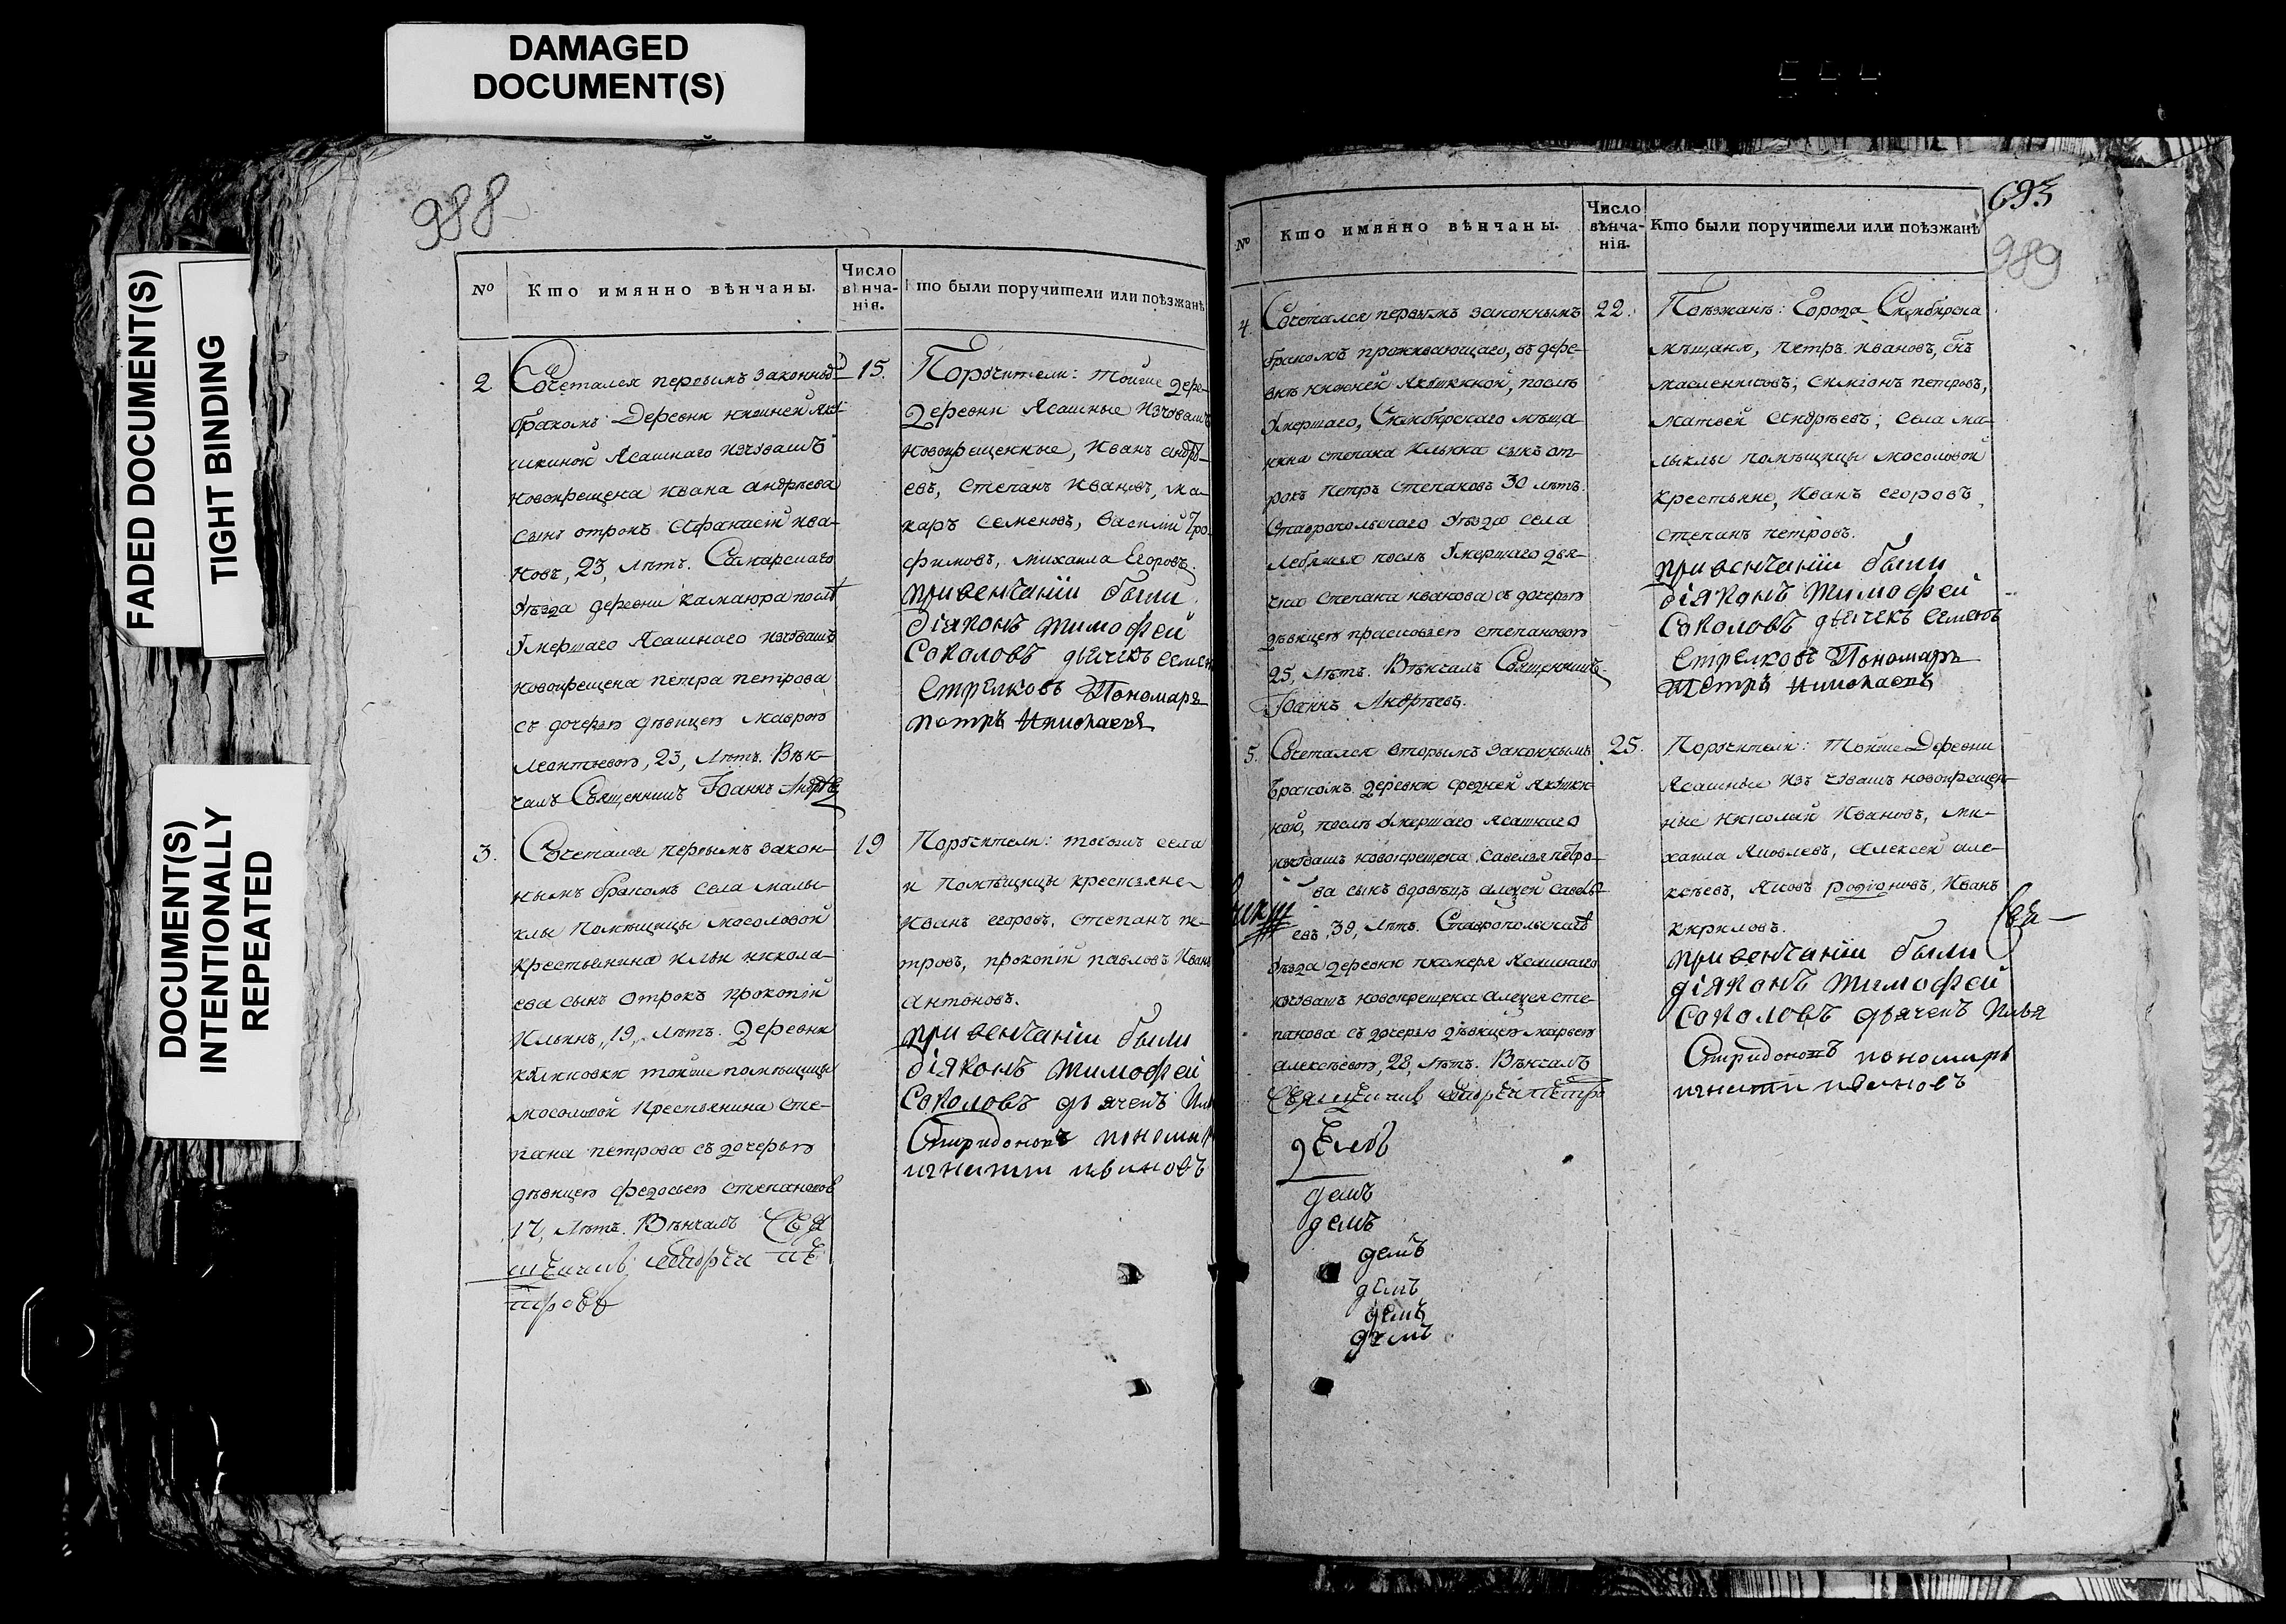 DAMAGED
DOCUMENT(S)
FADED DOCUMENT(S)
TIGHT BINDING
DOCUMENT(S)
INTENTIONALLY
REPEATED
988
№ Кто имянно вѣнчаны. Число вѣнча-нія. Кто были поручители или поѣзжанѣ
2 Сочетался первымъ законны 15.
бракомъ Деревни нижней
шкиной Ясашнаго изчувашъ
новокрещена Ивана андрѣева
сынъ отрокъ Афанасій Ива-
новъ, 23, лѣтъ. Самарскаго
уѣзда деревни камаюра послѣ
умершаго Ясашнаго изчувашъ
новокрещена петра петрова
съ дочерью дѣвицею маврою
леонтьевою, 23, лѣтъ. Вѣн-
чалъ Священникъ Іоаннъ Андрѣе
Поручители: тойже дере-
деревни Ясашные изчувашъ
новокрещенные, Иванъ андрѣ-
евъ, Степанъ Ивановъ, ма-
каръ семеновъ, василій тро-
фимовъ, михаила Егоровъ.
при венчаніи были
діяконъ тимофей
Соколовъ дьячекъ семен
Стрелковъ Пономарь
петръ Николаевъ
3. Сочетался первымъ закон- 19
нымъ бракомъ села малы-
клы помѣщицы мосоловой
крестьянина ильи никола-
ева сынъ отрокъ прокопій
Ильинъ, 19, лѣтъ. деревни
тойже помѣщицы
мосоловой крестьянина сте-
пана петрова съ дочерью
дѣвицею федосьею степановою
17, лѣтъ. Вѣнчалъ Свя
щенникъ Андрей пе
тровъ
Поручители: тогожъ села
и помѣщицы крестьяне
Иванъ егоровъ, степанъ пе-
тровъ, прокопій павловъ Иванъ
антоновъ.
при венчаніи были
діяконъ тимофей
Соколовъ дьячекъ Иль
Спиридоновъ пономарь
игнатій ивановъ
693
989
№ Кто имянно вѣнчаны. Число вѣнча-нія. Кто были поручители или поѣзжанѣ
4 Сочетался первымъ законнымъ 22.
бракомъ проживающаго, въ дере-
внѣ нижней Якушкиной, послѣ
умершаго, Синбирскаго мѣща-
нина степана Ильина сынъ от-
рокъ петръ степановъ 30 лѣтъ.
Ставропольскаго уѣзда села
Лебяжья послѣ умершаго дья-
чка степана иванова съ дочерью
дѣвицею прасковьею степановою
25, лѣтъ. Вѣнчалъ Священникъ
Іоаннъ Андрѣевъ.
Поѣзжанѣ: Города Синбирска
мѣщаня, петръ ивановъ, снъ
масленниковъ; симіонъ петровъ,
матвей андрѣевъ; села ма-
лыклы помѣщицы мосоловой
крестьяне, Иванъ егоровъ,
степанъ петровъ.
при венчаніи были
діяконъ тимофей
Соколовъ дьячекъ семенъ
Стрелковъ Пономарь
Петръ Николаевъ
5. Сочетался вторымъ законнымъ 25.
бракомъ деревни средней Якушки-
ной, послѣ умершаго ясашнаго
изчувашъ новокрещена, савелья петро-
ва сынъ вдовецъ алексей савель-
евъ, 39, лѣтъ. Ставропольскаго
уѣзда деревни Ясашнаго
изчувашъ новокрещена алексея сте-
панова съ дочерью дѣвицею марьею
алексѣевою, 28, лѣтъ. Вѣнчалъ
Священникъ Андрей петро
Поручители: тойже Деревни
Ясашные изъ чувашъ новокрещен-
ные николай Ивановъ, ми-
хаила Яковлевъ, алексей але-
ксѣевъ, Яковъ родіоновъ, Иванъ
кириловъ.
при венчаніи были
діяконъ тимофей
Соколовъ дьячекъ Илья
Спиридоновъ пономарь
игнатій ивановъ